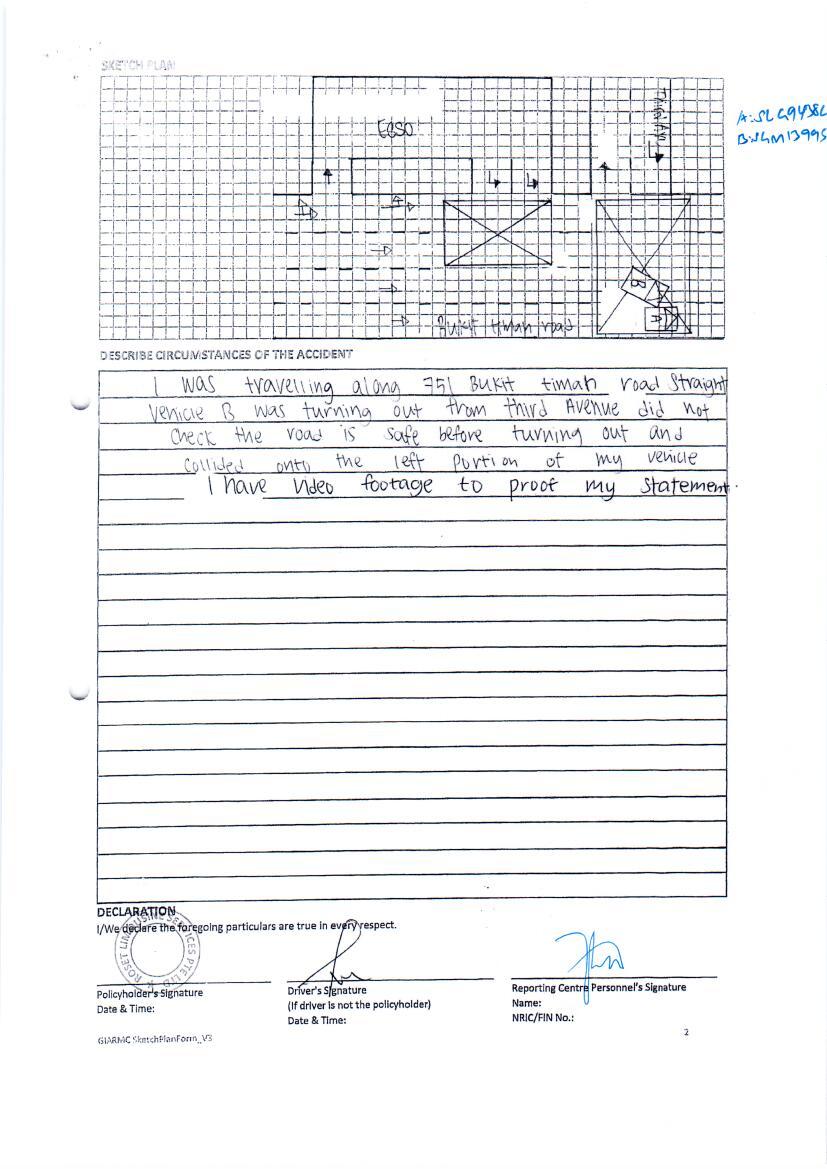 SKETCH PLAN
ESSO
Third Ave
B
A
Bukit timah road
DESCRIBE CIRCUMSTANCES OF THE ACCIDENT
I was travelling along 751 Bukit timah road Straight
Vehicle B was turning out from third Avenue did not
check the road is safe before turning out and
Collided onto the left portion of my vehicle
I have video footage to proof my statement.
DECLARATION
I/We declare the foregoing particulars are true in every respect.
ROSET LIMOUSINE SERVICES PTE LTD
Policyholder's Signature
Date & Time:
Driver's Signature
(If driver is not the policyholder)
Date & Time:
Reporting Centre Personnel's Signature
Name:
NRIC/FIN No.:
GIARMC SketchPlanForm_V3
2